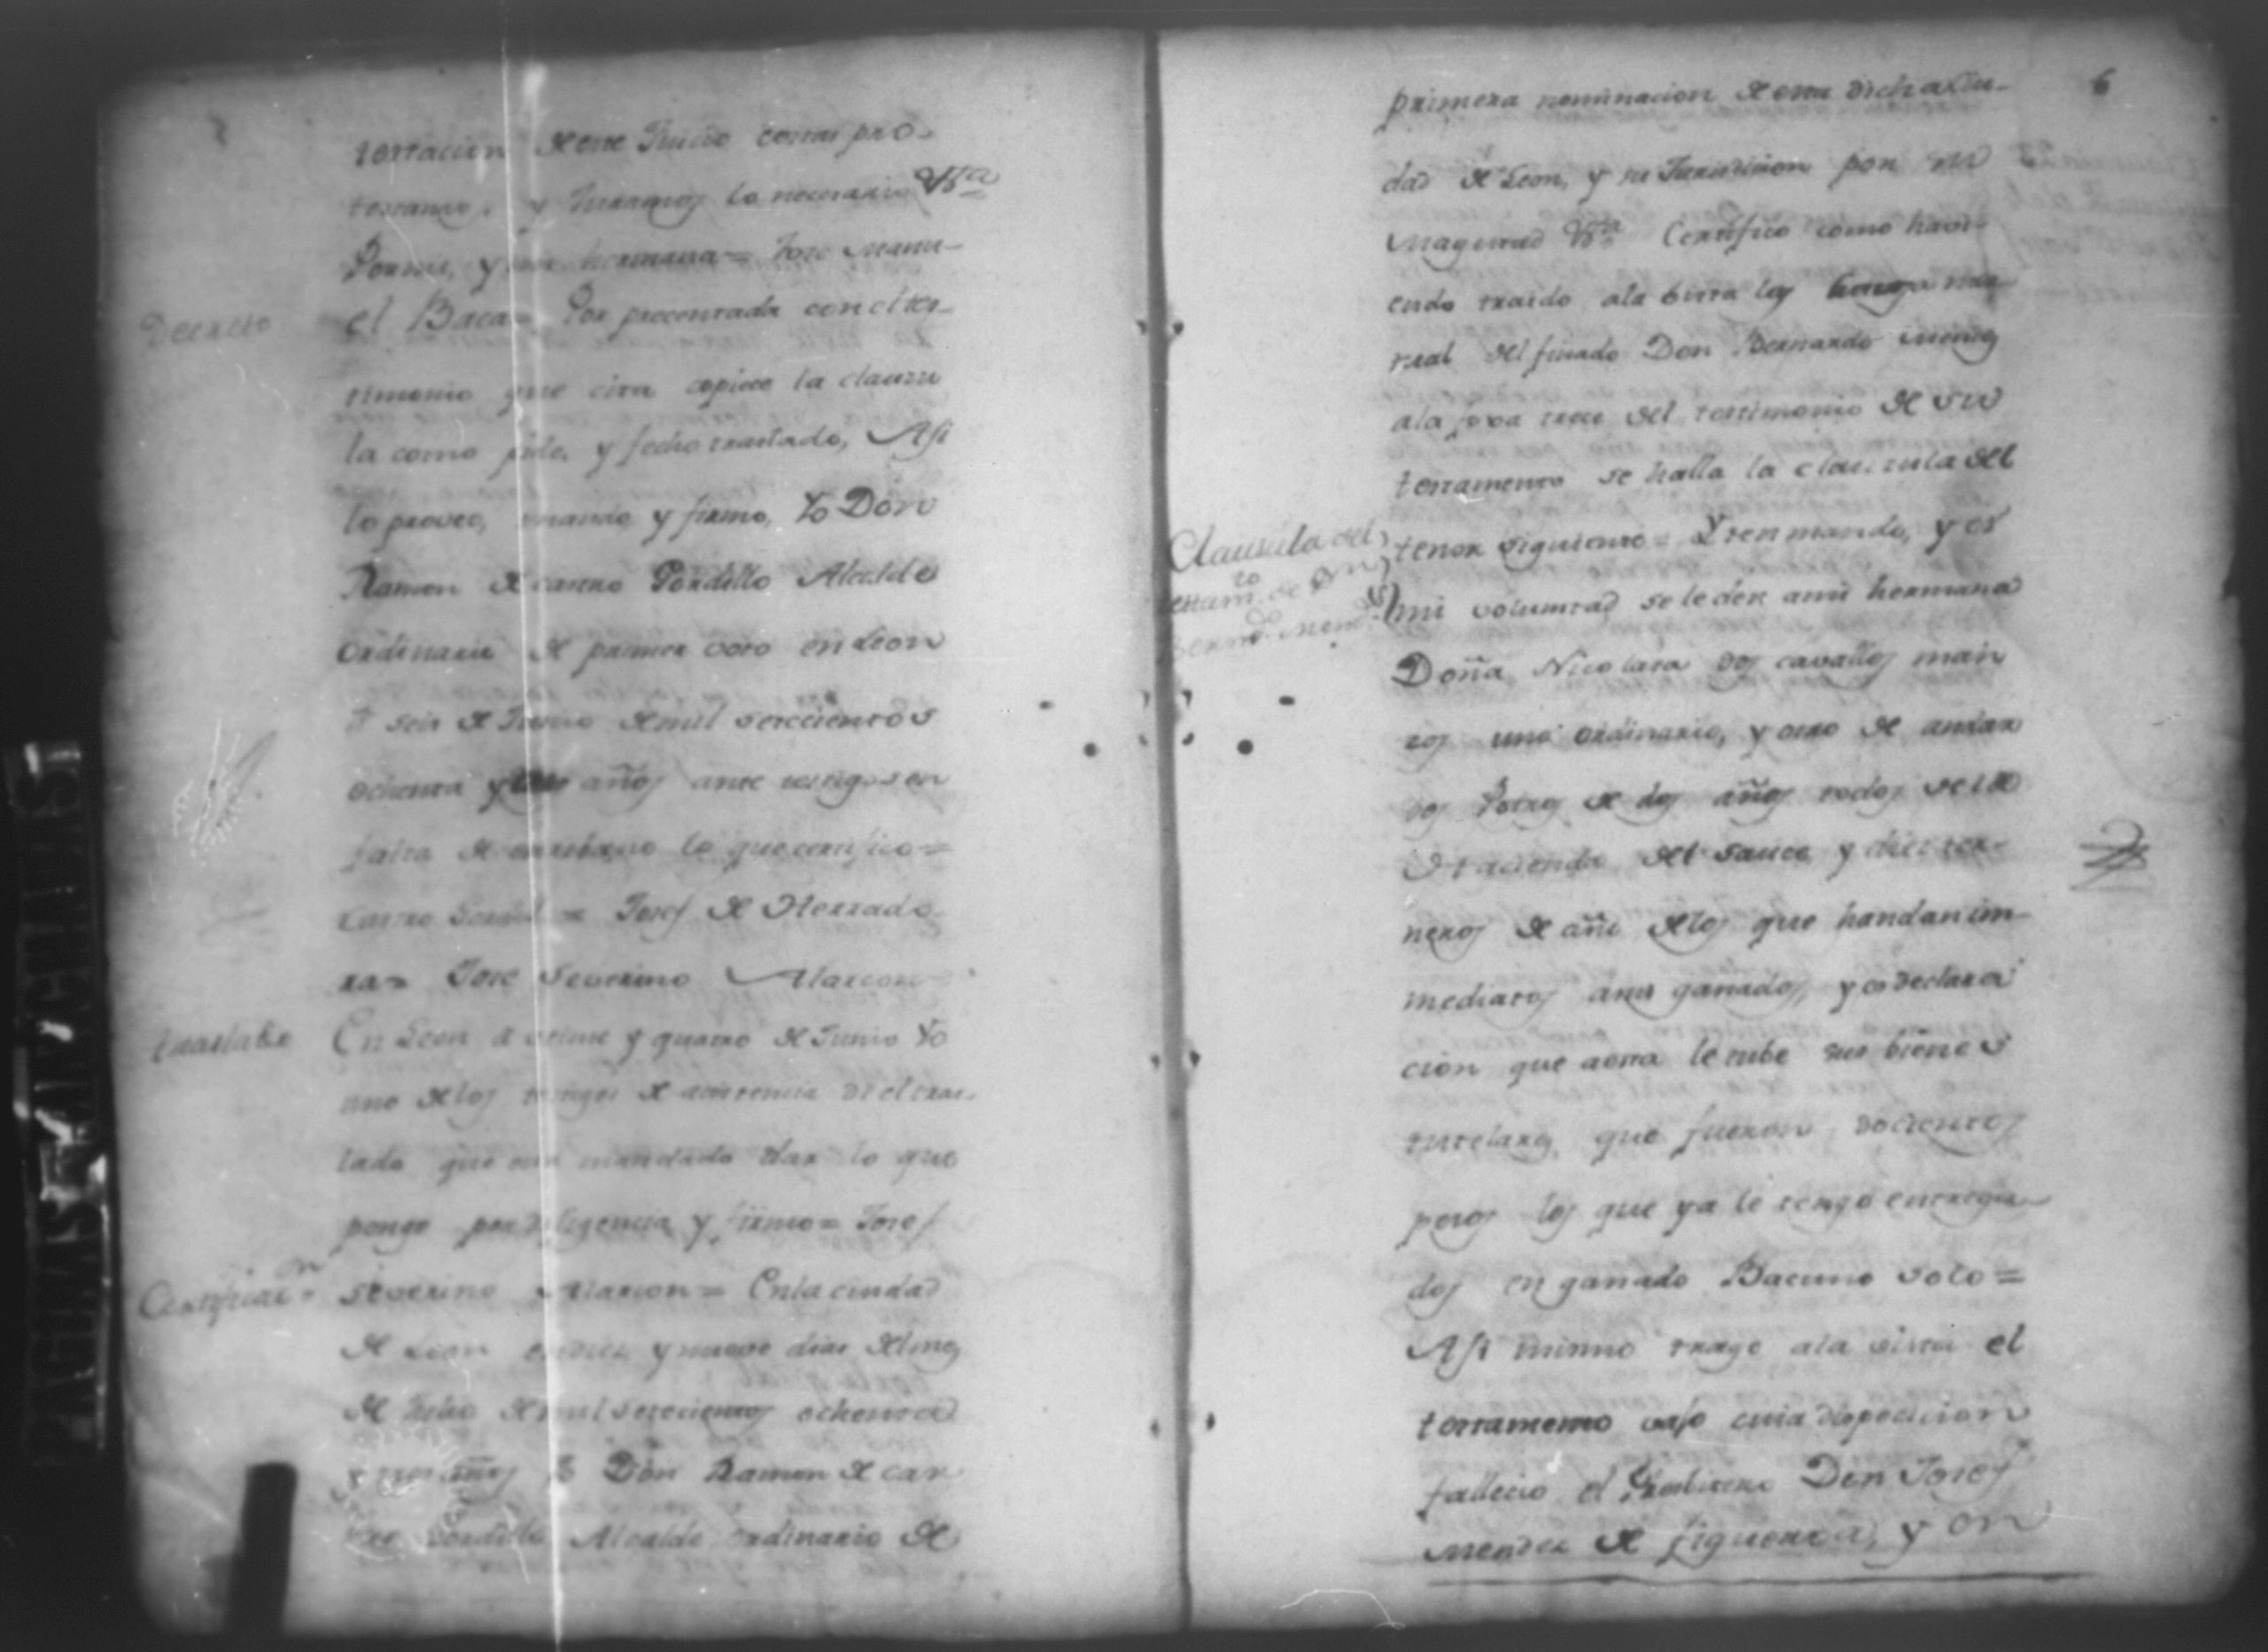 testacion de este Juicio como pro-
testamos, y Juramos lo necesario Vtª
Por mi, y mi hermana = Jose Manu-
Decreto
el Baca = Por presentada con el tes-
timonio que cita copiese la clausu
la como pide, y fecho traslado, Asi
lo proveo, mando, y firmo, Yo Don
Ramon de Castro Pordillo Alcalde
Ordinario de primer voto en Leon
á seis de Junio de mil setecientos
ochenta y años ante testigos en
falta de escribano lo que certifico =
Castro = Josef de Herrado
ra = Jose Severino Alarcon
traslado
En Leon á veinte y quatro de Junio Yo
uno de los testigos de asistencia di el tras-
lado que está mandado dar lo que
pongo por diligencia y firmo = Josef
Certificaⁿ
Severino Alarcon = En la ciudad
de Leon en diez y nueve dias del mes
de Julio de mil setecientos ochenta
y años Yo Don Ramon de Cas
tro Pordillo Alcalde ordinario de
6
primera nominacion de esta dicha Ciu-
dad de Leon, y su Jurisdicion por su
Magestad Vtª Certifico como havi-
endo traido ala vista los
del finado Don Bernardo Mendez
ala foxa trece del testimonio de su
testamento se halla la clausula del
Clausula del
testamᵗᵒ de Dⁿ
Bernᵈᵒ Mendˢ
tenor siguiente = Yten mando, y es
mi voluntad se le den a mi hermana
Doña Nicolasa dos cavallos man
sos uno ordinario, y otro de andar
dos Potros de dos años todos de la
Hacienda del Sauce, y diez ter-
neros de año de los que handan in-
mediatos a mis ganados, y es declara
cion que a esta le tube sus bienes
tutelares, que fueron docientos
pesos los que ya le tengo entrega-
dos en ganado Bacuno solo =
Asi mismo traxe ala vista el
testamento vajo cuia disposicion
fallecio el Presbitero Don Josef
Mendez de figueroa, y en